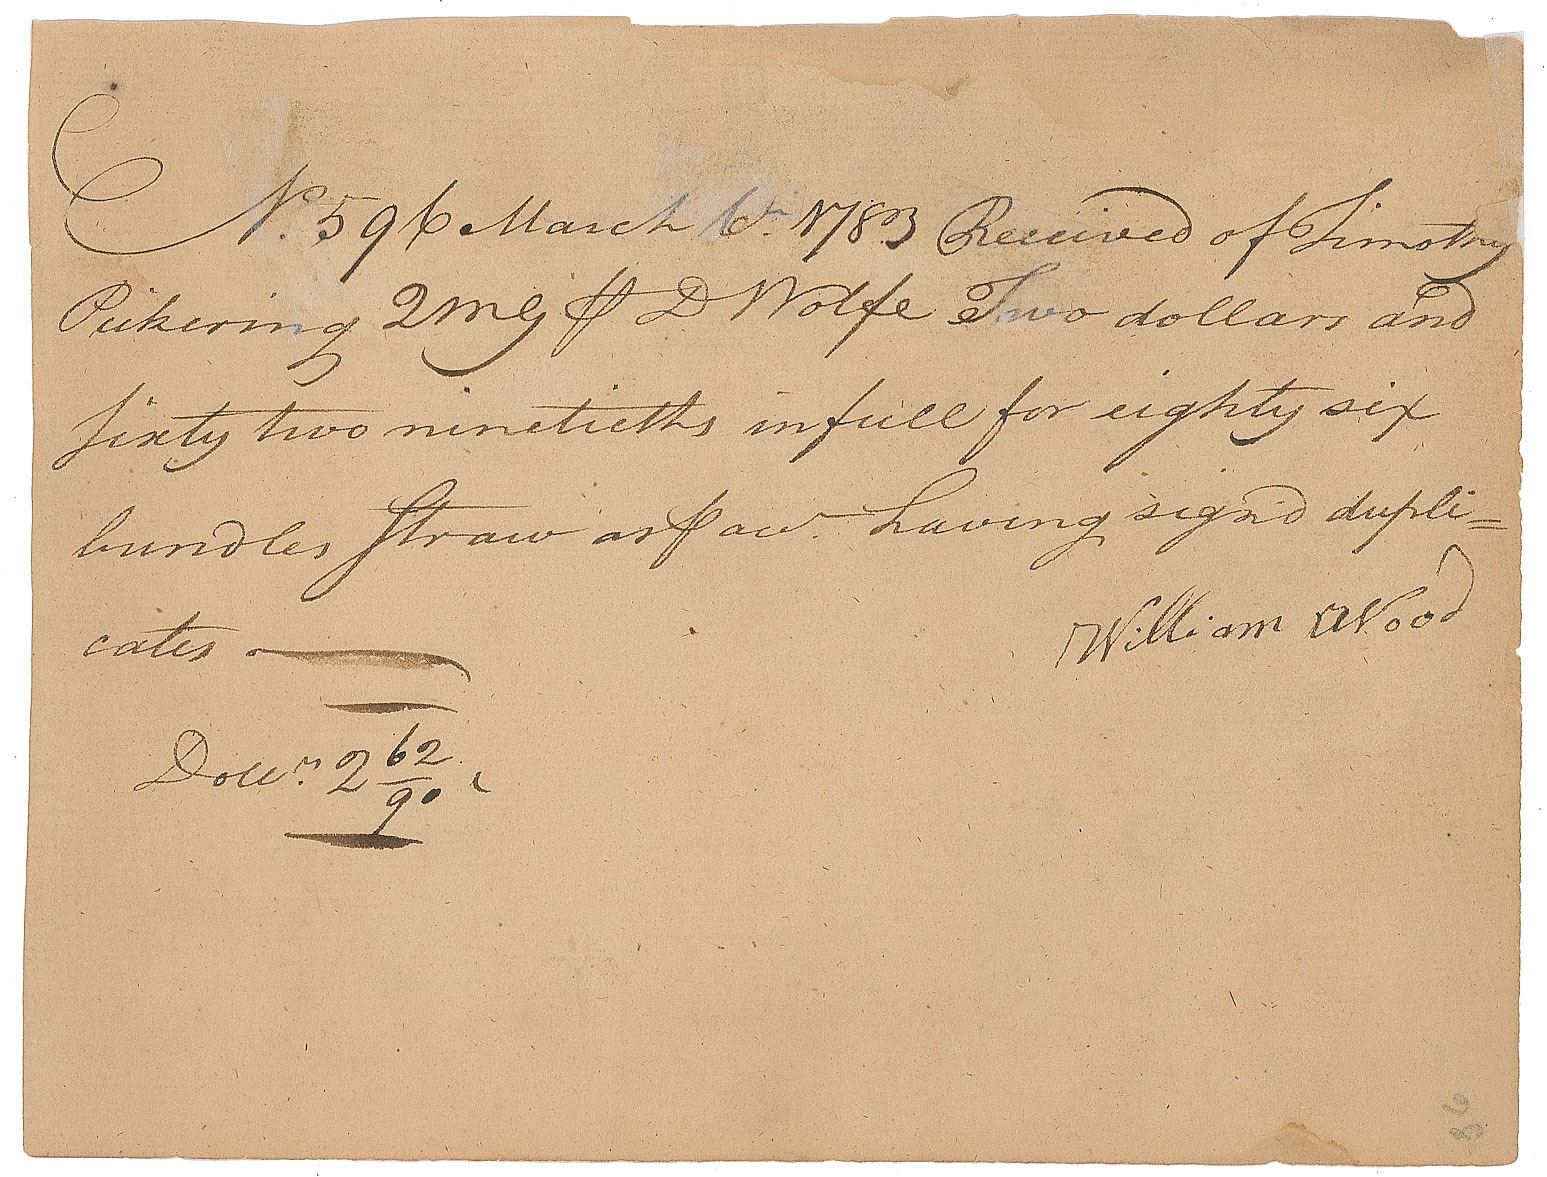 No. 596 March 6th. 1783 Received of Timothy
Pickering QMG ⅌ D Wolfe Two dollars and
sixty two ninetieths in full for eighty six
bundles Straw as ⅌ acct. having sign'd dupli=
cates
William Wood
Dollrs. 2 62/90
36